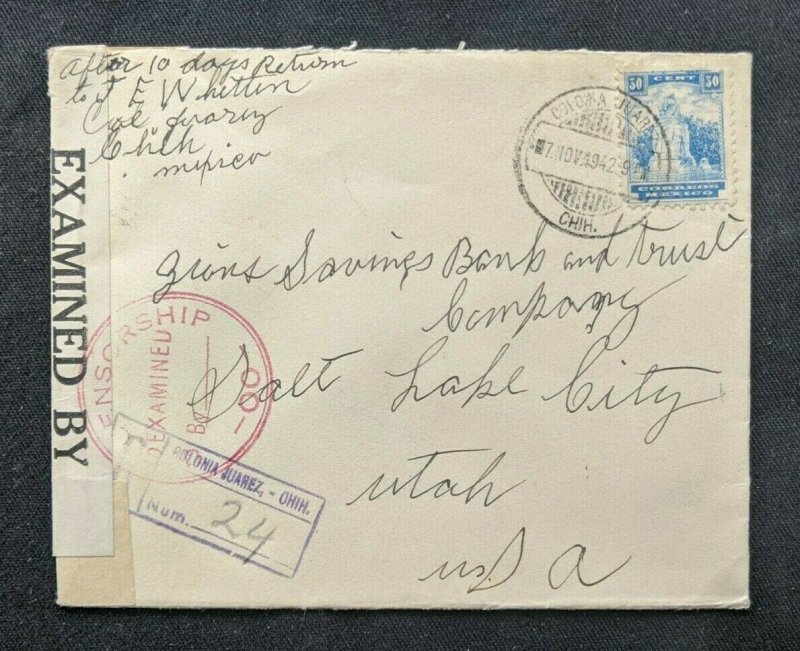 After 10 days Return
to J E Whetten
Col Juarez
Chih
mexico
50 CENT 50
CORREOS
MEXICO
COLONIA JUAREZ
7. NOV. 1942
CHIH.
Zions Savings Bank and Trust
Company
Salt Lake City
Utah
USA
EXAMINED BY
ENSORSHIP
EXAMINED
By
100
COLONIA JUAREZ, - CHIH.
Num. 24